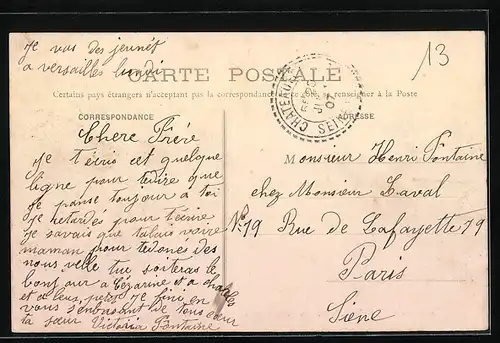 Je vas des jeunét
a versailles lundi
13
CARTE POSTALE
Certains pays étrangers n'acceptant pas la correspondance se renseigner à la Poste
CORRESPONDANCE
ADRESSE
Chere Frére
Je técris cet quelque
ligne pour te dire que
Je panse toujour a toi
Je retardés pour técrire
Je savais que talais voire
maman pour te donés des
nous velle tu soiteras le
bonjour a Cézarine et a
et a leus, Je fini en
vous s'enbrasant de tous cœur
ta sœur Victoria Fontaine
Monsieur Henri Fontaine
chez Monsieur Laval
No 79 Rue de Lafayette 79
Paris
Siéne